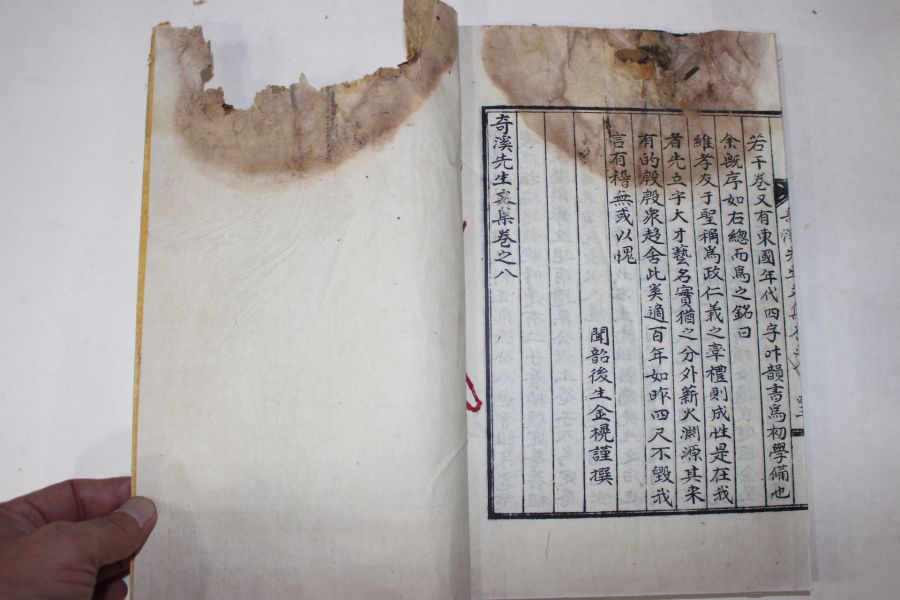 若干卷又有東國年代四字叶韻書爲初學備也
余旣序如右總而爲之銘曰
維孝友于聖稱爲政仁義之牽禮則成性是在我
者先立字大才藝名實猶之分外薪火淵源其来
有的彀彀衆趍舍此奚適百年如昨四尺不毀我
言有稽無或以愧
聞韶後生金榥謹撰
奇溪先生文集卷之八